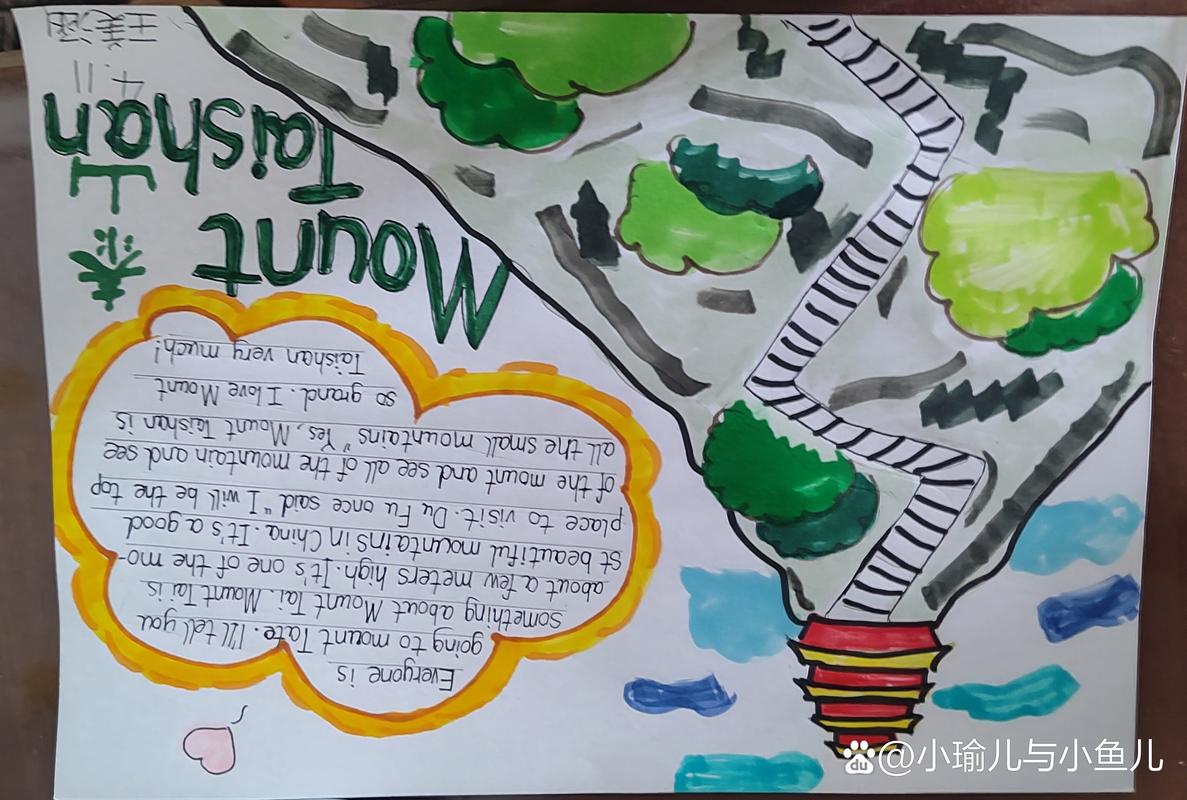 Everyone is
going to mount Tate. I'll tell you
something about Mount Tai. Mount Tai is
about a few meters high. It's one of the mo-
st beautiful mountains in China. It's a good
place to visit. Du Fu once said "I will be the top
of the mount and see all of the mountain and see
all the small mountains" Yes, Mount Taishan is
so grand. I love Mount
Taishan very much!
Mount
Taishan
泰山
4.11
王美涵
du @小瑜儿与小鱼儿